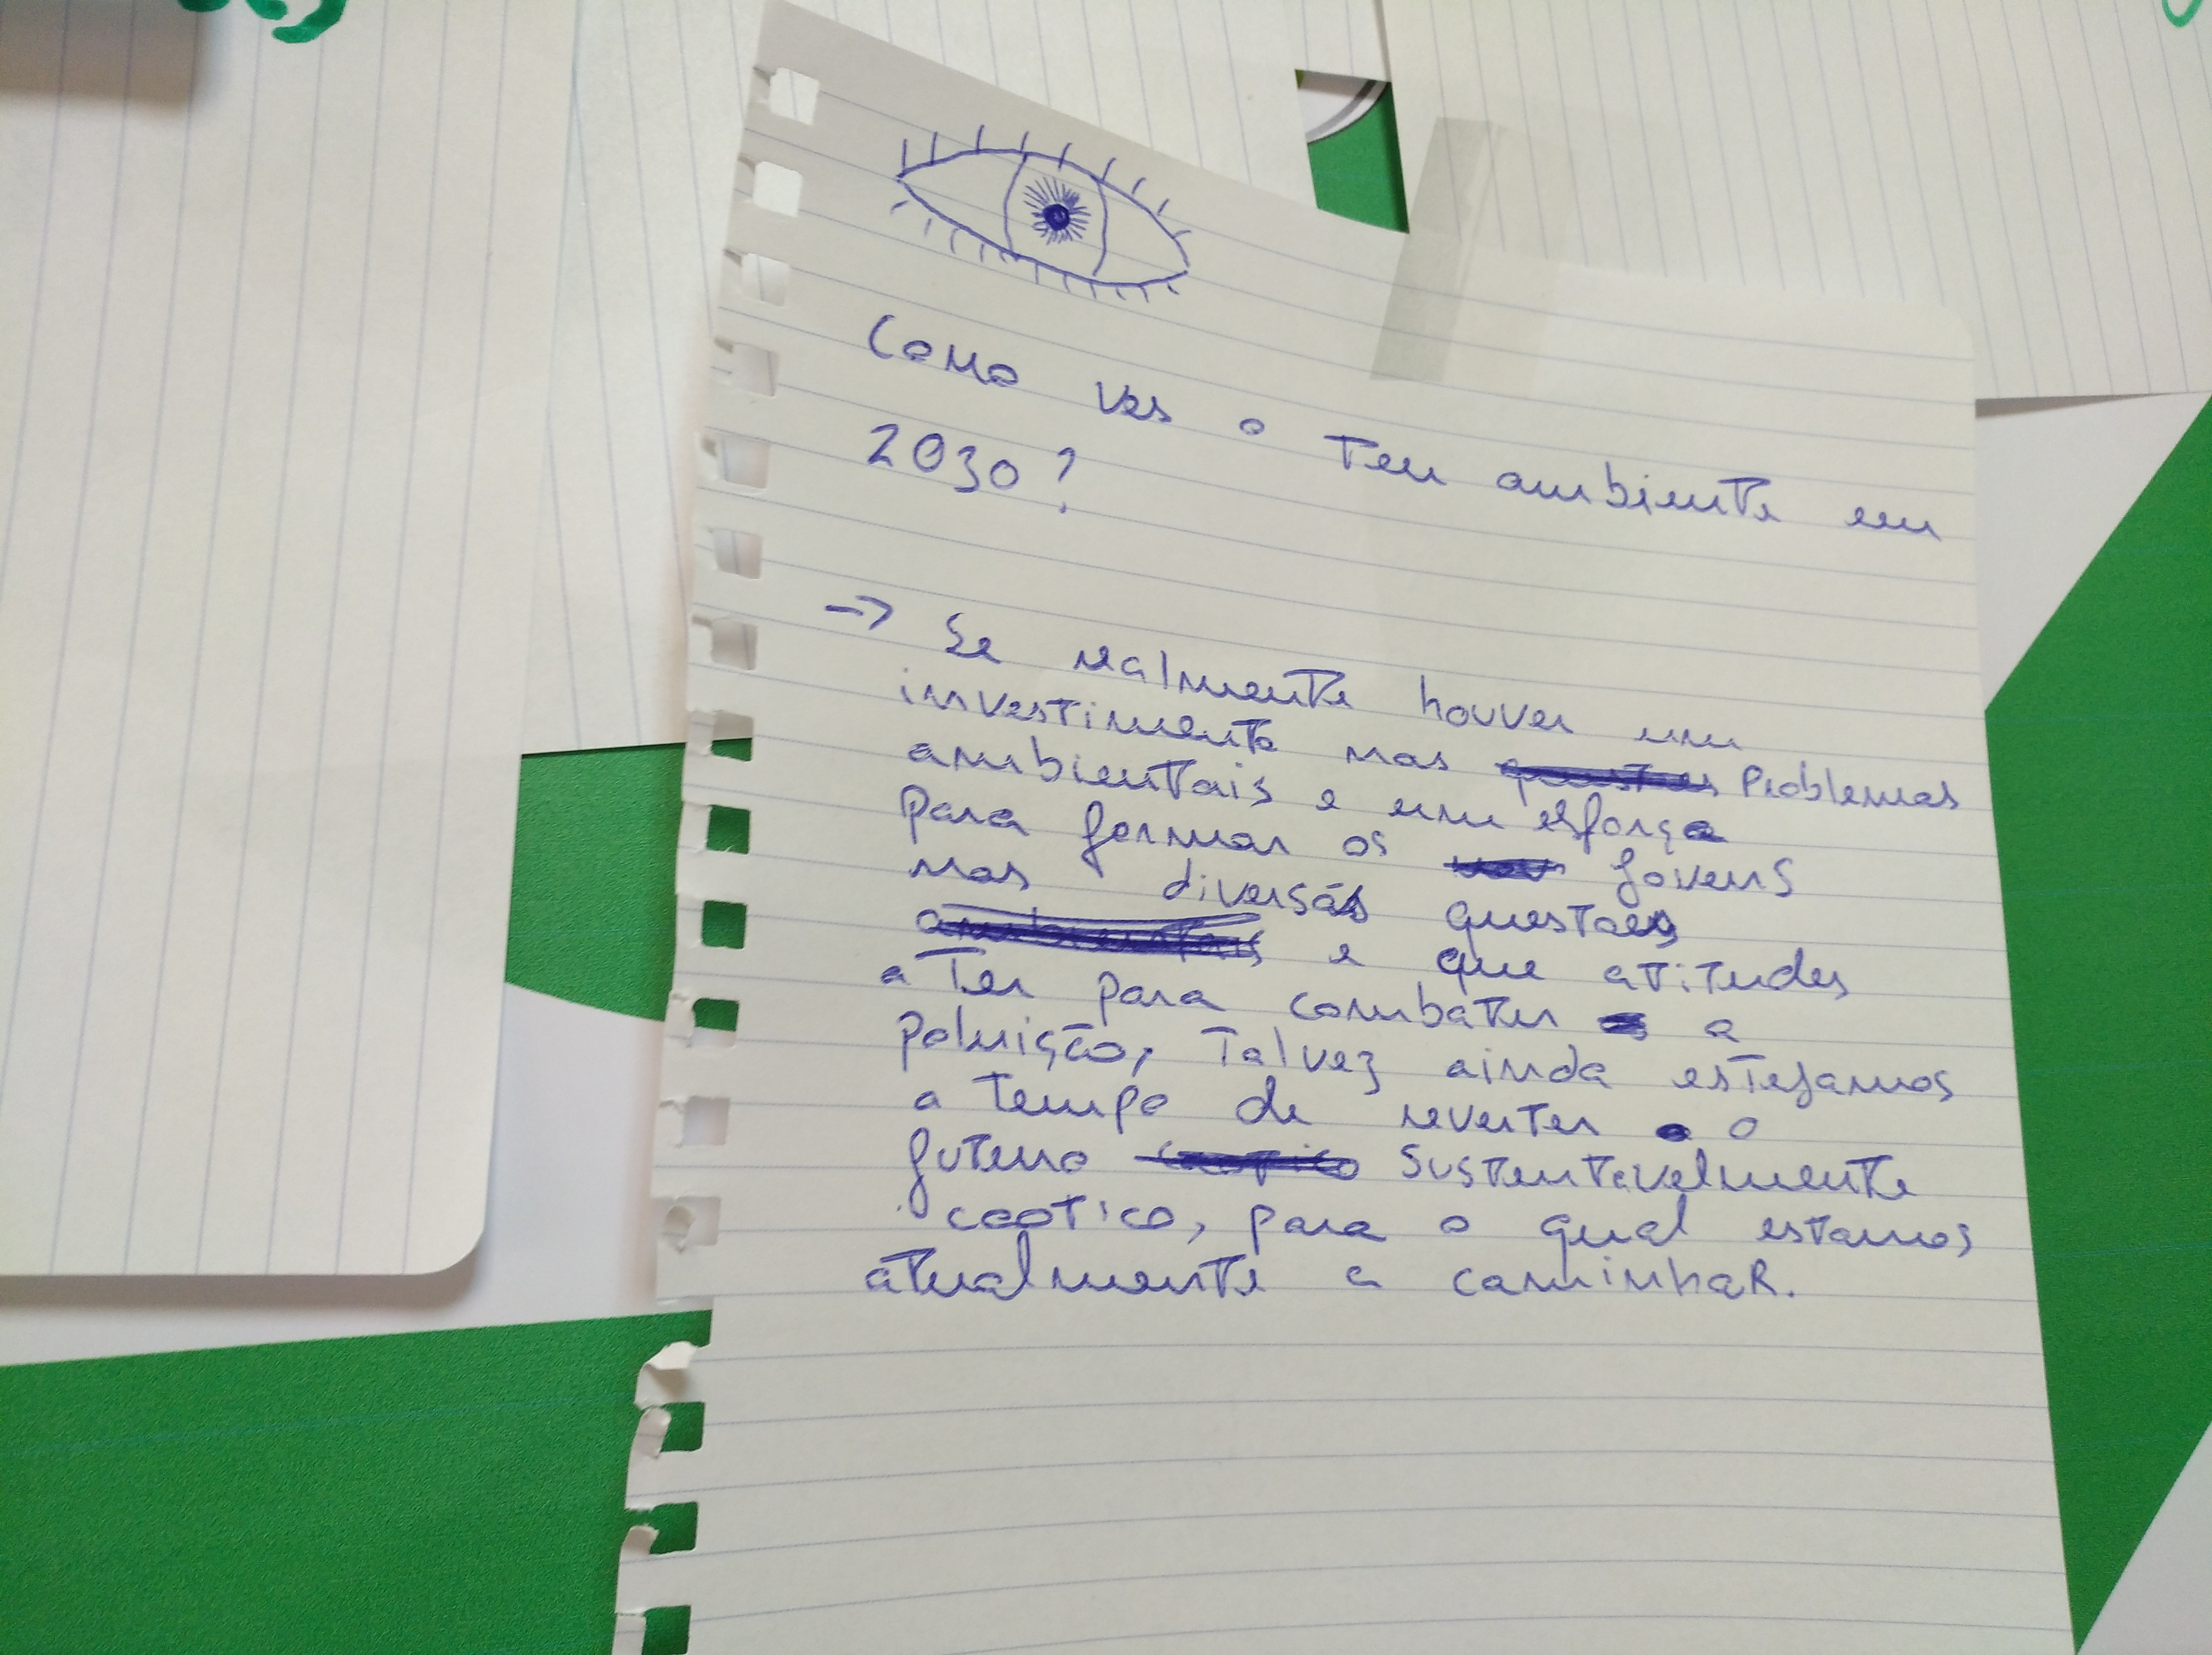 Como ves o Teu ambiente em
2030?
-> Se realmente houver um
investimento nas questões Problemas
ambientais e um esforço
para formar os jovens
nas diversas questões
ambientais e que atitudes
a Ter para combater a
poluição, Talvez ainda estejamos
a Tempo de reverter o
futuro caotico sustentavelmente
caotico, para o qual estamos
atualmente a caminhaR.